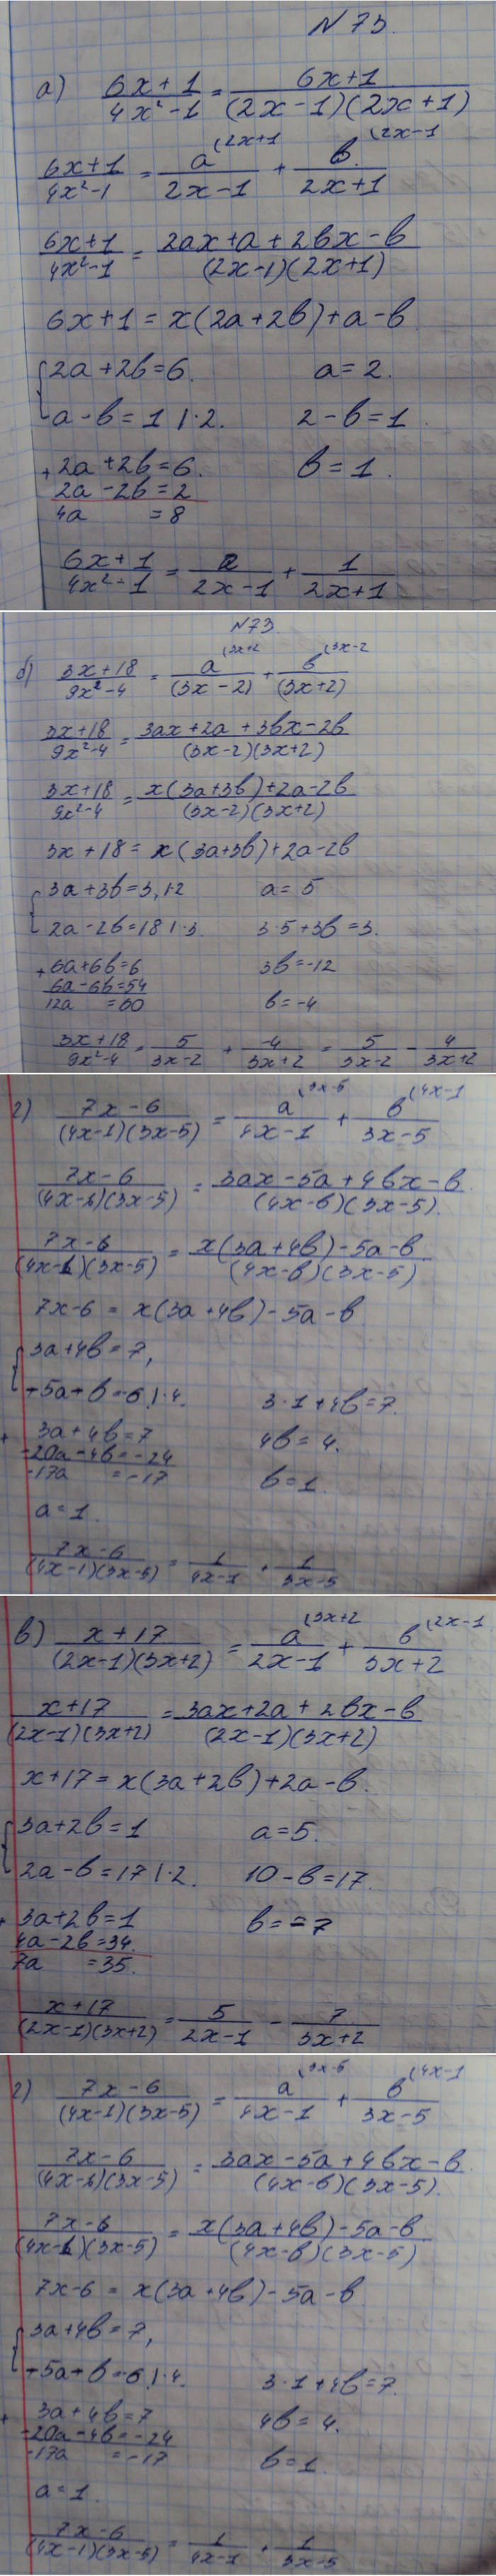 N 73.
а) (6x+1)/(4x²-1) = (6x+1)/((2x-1)(2x+1))
(6x+1)/(4x²-1) = a^(2x+1/(2x-1) + b^(2x-1/(2x+1)
(6x+1)/(4x²-1) = (2ax+a+2bx-b)/((2x-1)(2x+1))
6x+1 = x(2a+2b)+a-b
{2a+2b=6. a=2.
a-b=1 |·2. 2-b=1.
+2a+2b=6. b=1.
2a-2b=2
4a =8
(6x+1)/(4x²-1) = 2/(2x-1) + 1/(2x+1)
N73.
б) (3x+18)/(9x²-4) = a^(3x+2/(3x-2) + b^(3x-2/(3x+2)
(3x+18)/(9x²-4) = (3ax+2a+3bx-2b)/((3x-2)(3x+2))
(3x+18)/(9x²-4) = (x(3a+3b)+2a-2b)/((3x-2)(3x+2))
3x+18 = x(3a+3b)+2a-2b
{3a+3b=3, |·2 a=5
2a-2b=18 |·3. 3·5+3b=3.
+6a+6b=6 3b=-12
6a-6b=54
12a =60 b=-4
(3x+18)/(9x²-4) = 5/(3x-2) + -4/(3x+2) = 5/(3x-2) - 4/(3x+2)
г) (7x-6)/((4x-1)(3x-5)) = a^(3x-5/(4x-1) + b^(4x-1/(3x-5)
(7x-6)/((4x-1)(3x-5)) = (3ax-5a+4bx-b)/((4x-b)(3x-5)).
(7x-6)/((4x-1)(3x-5)) = (x(3a+4b)-5a-b)/((4x-b)(3x-5))
7x-6 = x(3a+4b)-5a-b
{3a+4b=7,
-5a-b=-6 |·4. 3·1+4b=7.
+ 3a+4b=7 4b=4.
-20a-4b=-24
-17a =-17 b=1.
a=1.
(7x-6)/((4x-1)(3x-5)) = 1/(4x-1) + 1/(3x-5)
в) (x+17)/((2x-1)(3x+2)) = a^(3x+2/(2x-1) + b^(2x-1/(3x+2)
(x+17)/((2x-1)(3x+2)) = (3ax+2a+2bx-b)/((2x-1)(3x+2))
x+17 = x(3a+2b)+2a-b.
{3a+2b=1 a=5.
2a-b=17 |·2. 10-b=17.
+ 3a+2b=1 b=-7
4a-2b=34.
7a =35.
(x+17)/((2x-1)(3x+2)) = 5/(2x-1) - 7/(3x+2)
г) (7x-6)/((4x-1)(3x-5)) = a^(3x-5/(4x-1) + b^(4x-1/(3x-5)
(7x-6)/((4x-1)(3x-5)) = (3ax-5a+4bx-b)/((4x-b)(3x-5)).
(7x-6)/((4x-1)(3x-5)) = (x(3a+4b)-5a-b)/((4x-b)(3x-5))
7x-6 = x(3a+4b)-5a-b
{3a+4b=7,
-5a-b=-6 |·4. 3·1+4b=7.
+ 3a+4b=7 4b=4.
-20a-4b=-24
-17a =-17 b=1.
a=1.
(7x-6)/((4x-1)(3x-5)) = 1/(4x-1) + 1/(3x-5)